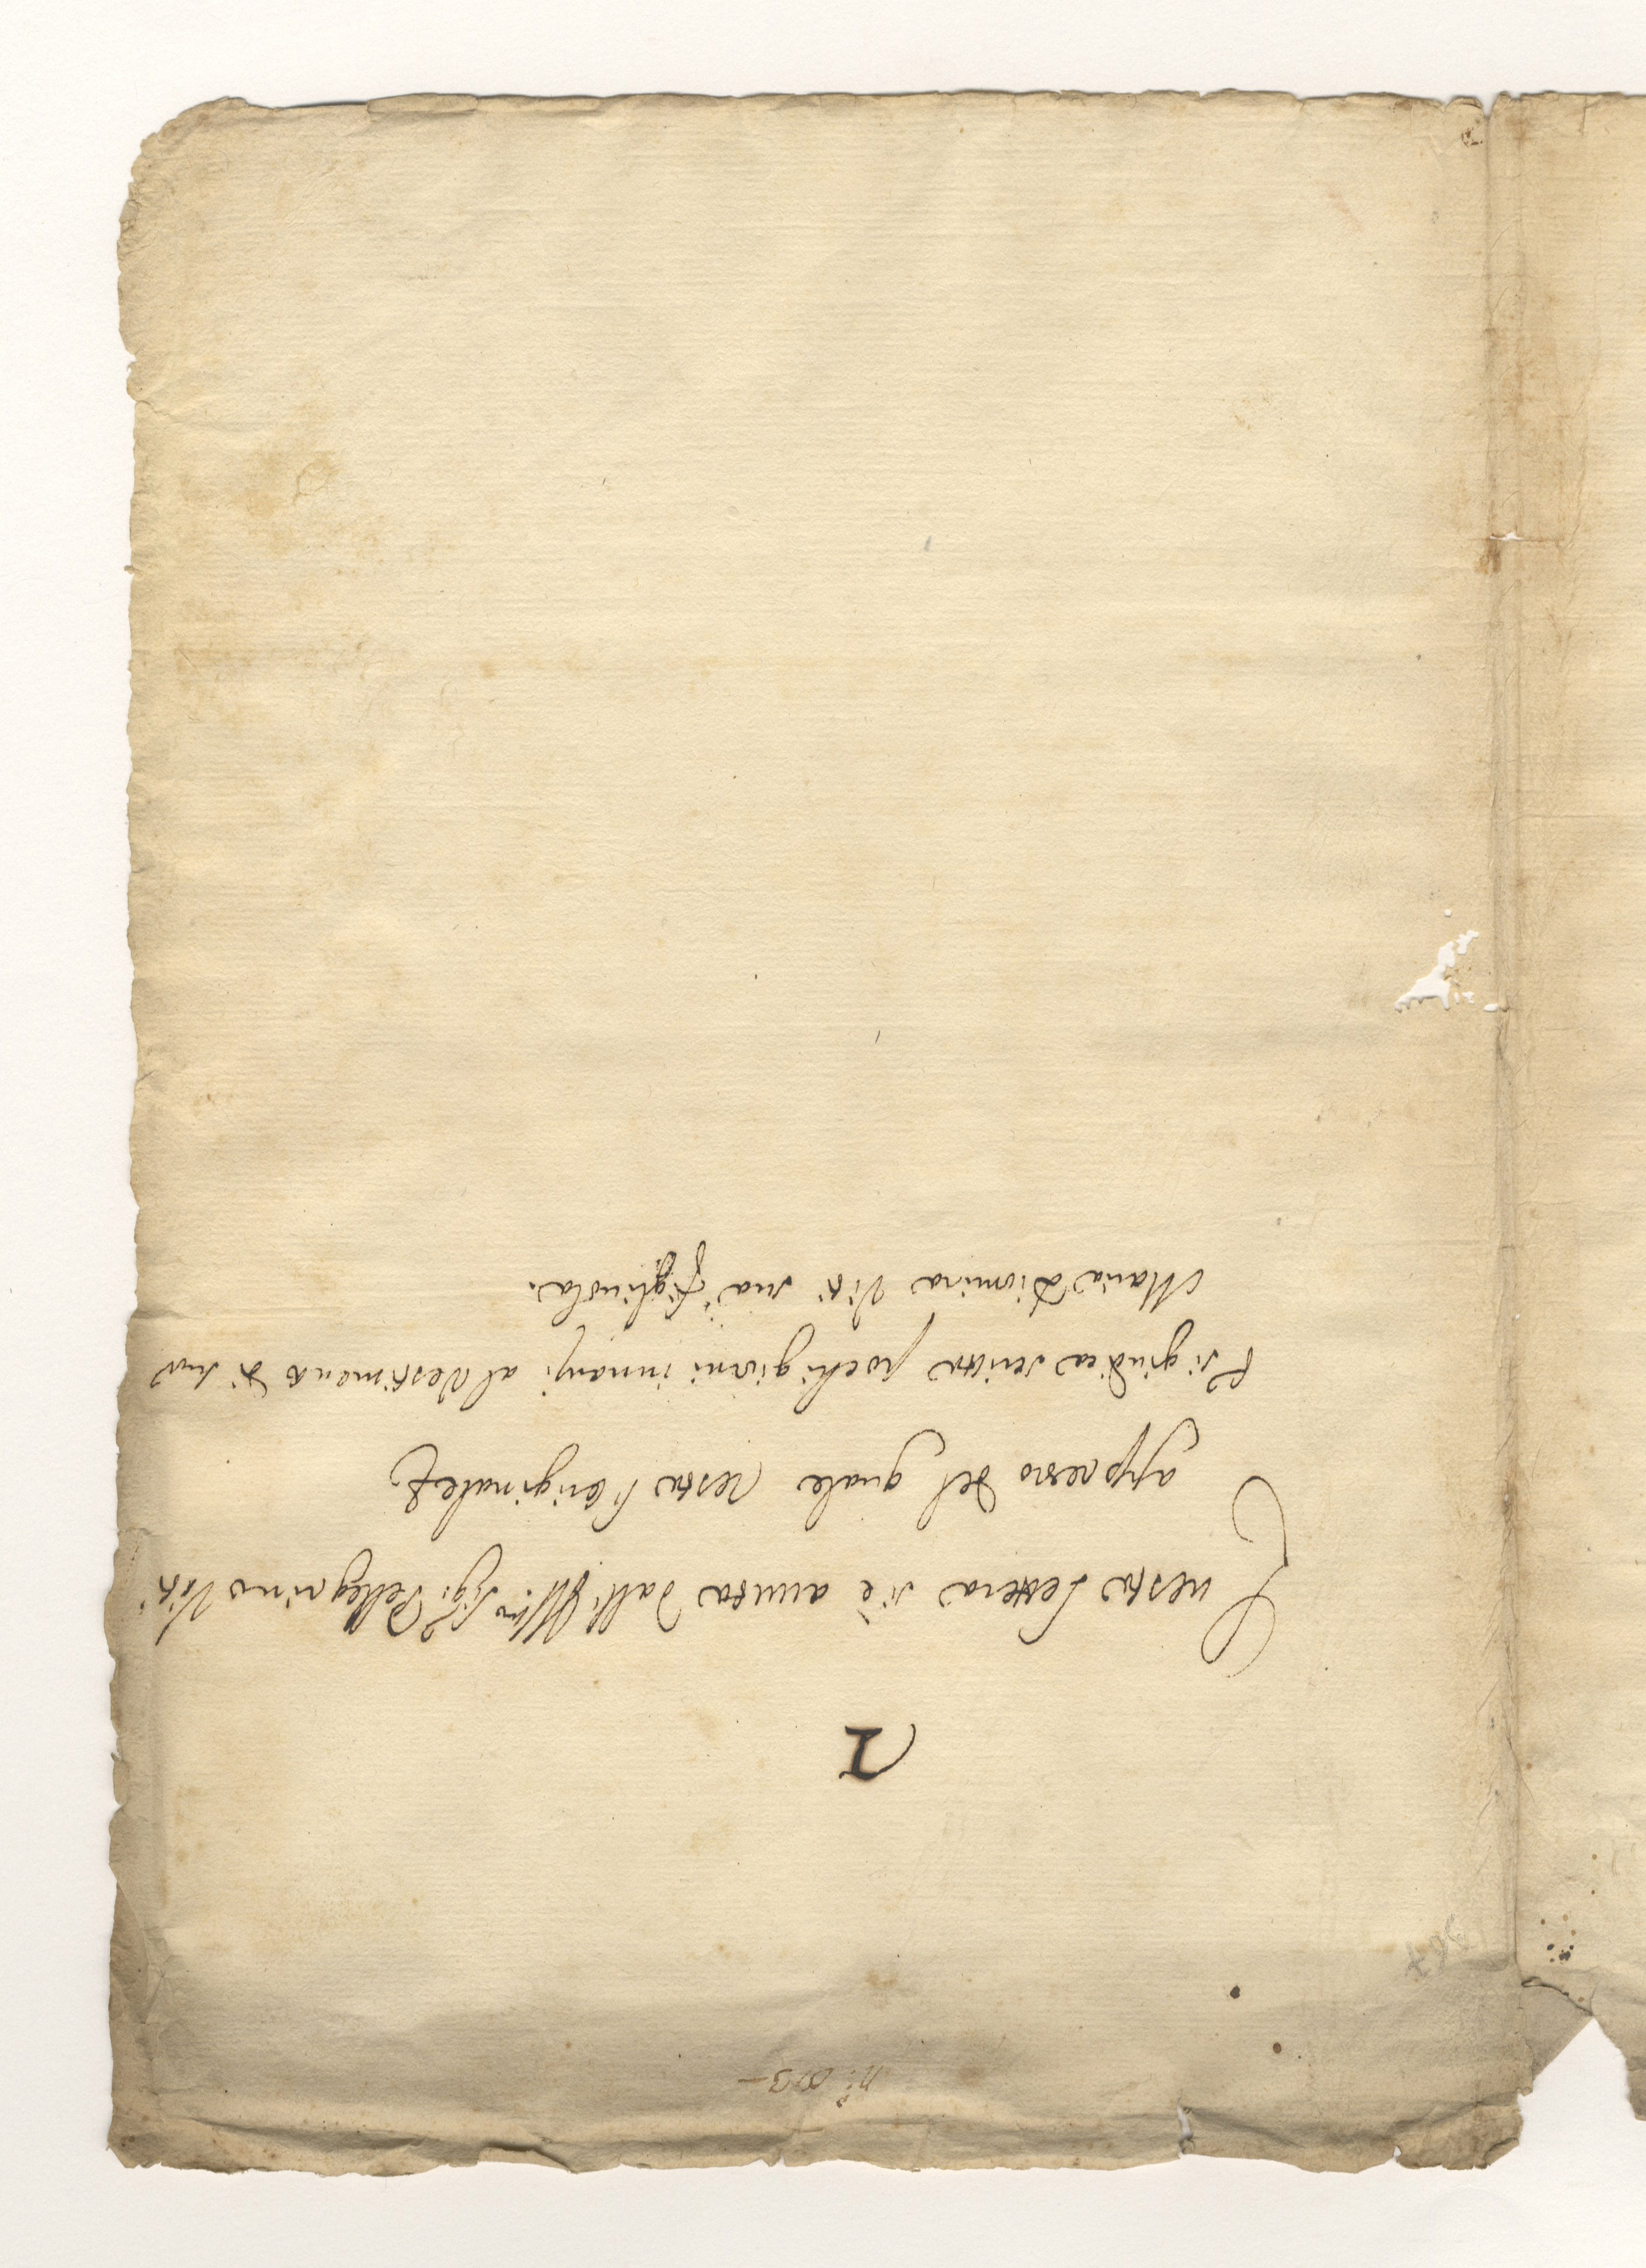 nº 003 –
I
Questa Lettera si è avuta dall' Illmo Sigr Pellegrino Viti
appresso del quale resta l'originale
E si giudica scritta pochi giorni innanzi al Vestimento di Suor
Maria Diomira Viti sua figliuola.